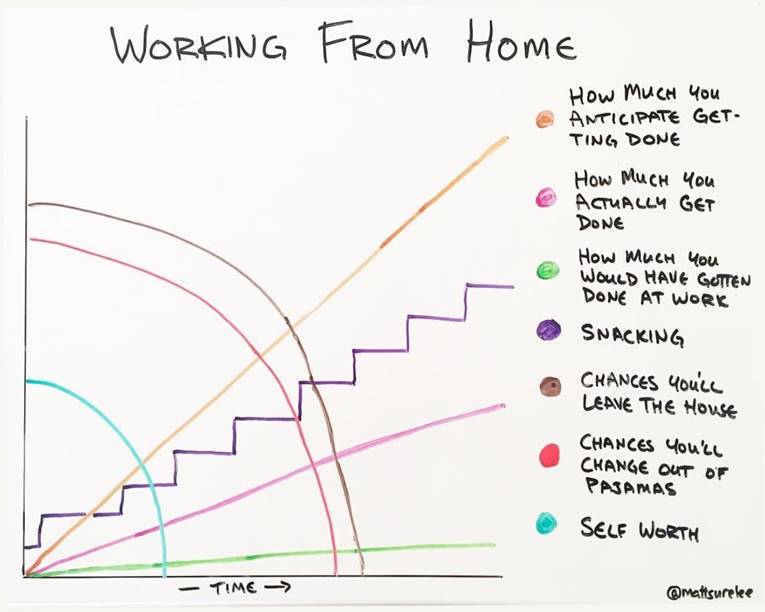 WORKING FROM HOME
HOW MUCH YOU
ANTICIPATE GET-
TING DONE
HOW MUCH YOU
ACTUALLY GET
DONE
HOW MUCH YOU
WOULD HAVE GOTTEN
DONE AT WORK
SNACKING
CHANCES YOU'LL
LEAVE THE HOUSE
CHANCES YOU'LL
CHANGE OUT OF
PAJAMAS
SELF WORTH
— TIME →
@mattsurelee